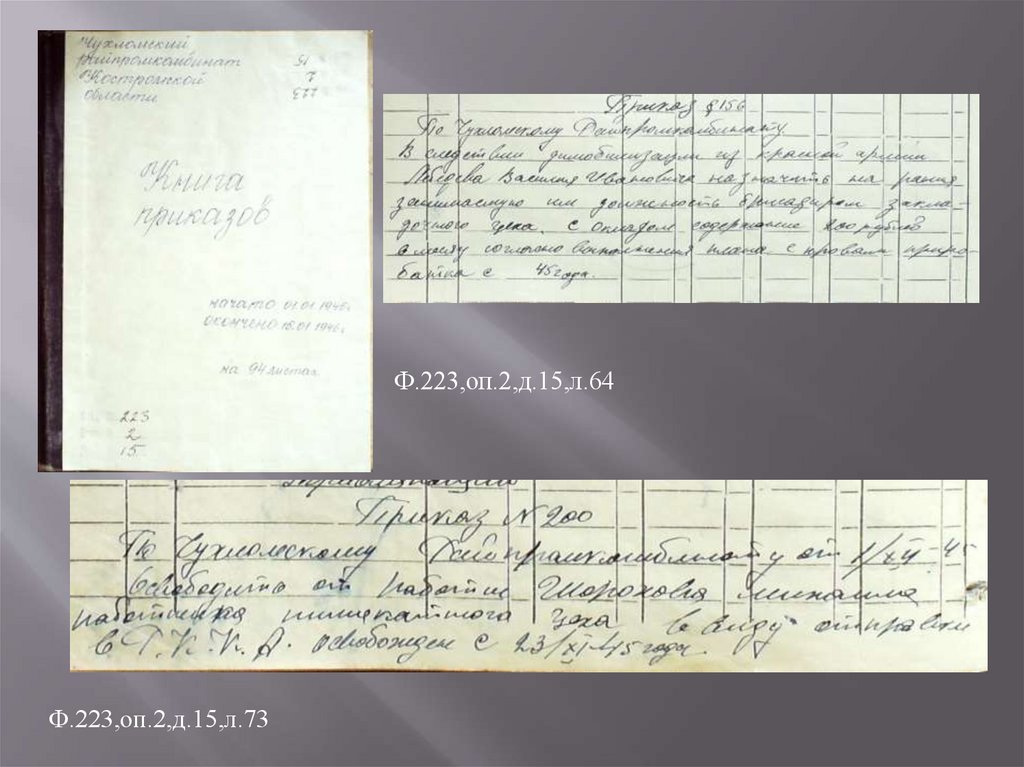 Чухломский
райпромкомбинат
Костромской
области
15
2
223
Книга
приказов
начато 01.01.1946г.
окончено 18.01.1946г.
на 94 листах
223
2
15
Приказ § 156
По Чухломскому Райпромкомбинату
В следствии димобилизации из красной армии
Лебедева Василия Ивановича назначить на ранее
занимаемую им должность бригадиром закла-
дочного цеха, с окладом содержание 200 рублей
в месяц согласно выполнения плана с правом прира-
батка с 45 года.
Ф.223,оп.2,д.15,л.64
Приказ N 200
По Чухломскому Райпромкомбинату от 1/XII-45
Освободить от работы Шорохова Михаила
работника цеха в виду отправки
в Р.К.К.А. освобожден с 23/XI-45 года.
Ф.223,оп.2,д.15,л.73